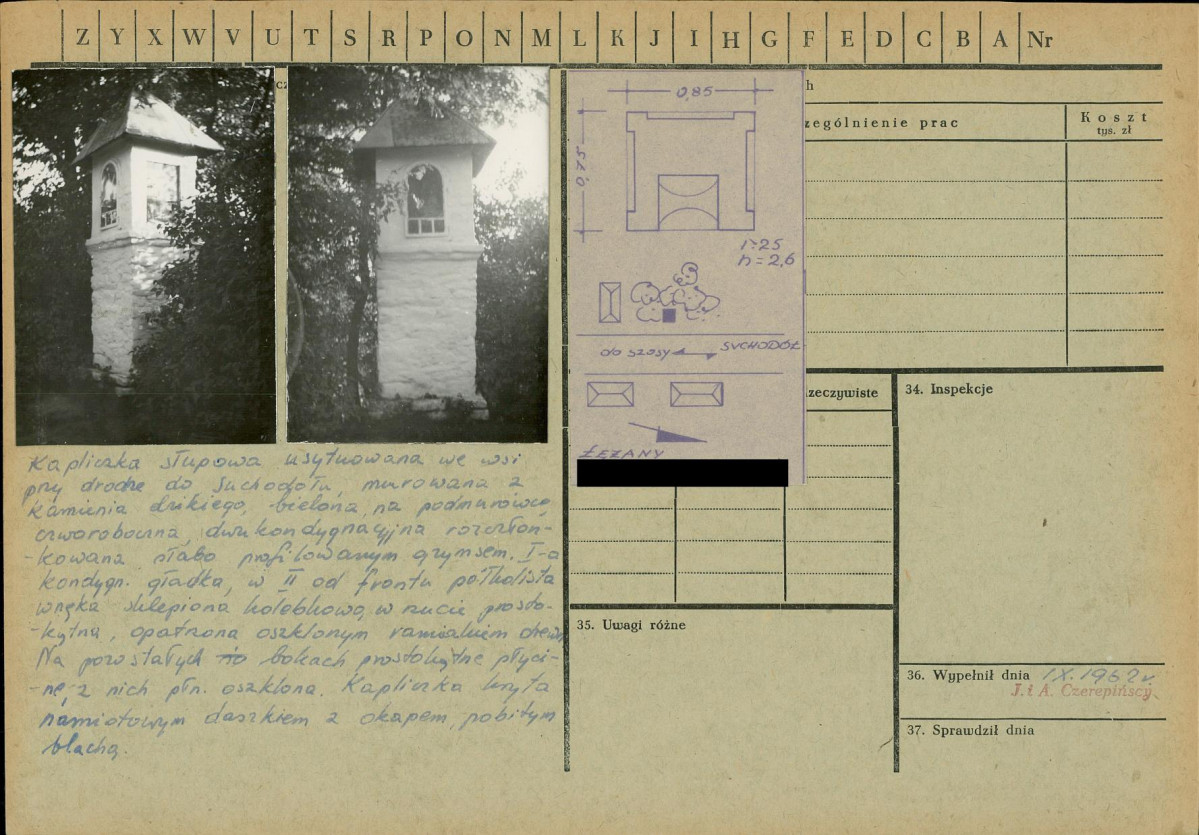 Z Y X W V U T S R P O N M L K J I H G F E D C B A Nr
cz
h
zególnienie prac
Koszt
tys. zł
0,85
0,75
1:25
h = 2,6
do szosy
SUCHODÓŁ
ŁĘŻANY
zeczywiste
34. Inspekcje
35. Uwagi różne
36. Wypełnił dnia IX. 1962 r.
J. i A. Czerepińscy
37. Sprawdził dnia
Kapliczka słupowa usytuowana we wsi
przy drodze do Suchodołu, murowana z
kamienia dzikiego, bielona, na podmurówce,
czworoboczna, dwukondygnacyjna rozczłon-
-kowana słabo profilowanym gzymsem. I-a
kondygn. gładka, w II od frontu półkolista
wnęka sklepiona kolebkowo, w rzucie prosto-
-kątna, opatrzona oszklonym ramiakiem drewn.
Na pozostałych bokach prostokątne płyci-
-ne, z nich płn. oszklona. Kapliczka kryta
namiotowym daszkiem z okapem, pobitym
blachą.